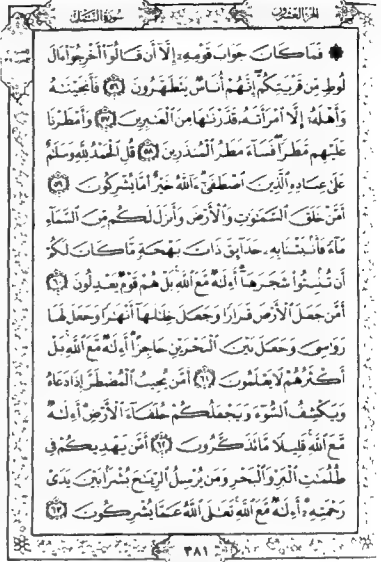 الجزء العشرون سورة النمل
۞ فَمَا كَانَ جَوَابَ قَوْمِهِ إِلَّا أَن قَالُوا أَخْرِجُوا ءَالَ
لُوطٍ مِّن قَرْيَتِكُمْ إِنَّهُمْ أُنَاسٌ يَتَطَهَّرُونَ ﴿٥٦﴾ فَأَنجَيْنَٰهُ
وَأَهْلَهُ إِلَّا امْرَأَتَهُ قَدَّرْنَٰهَا مِنَ الْغَٰبِرِينَ ﴿٥٧﴾ وَأَمْطَرْنَا
عَلَيْهِم مَّطَرًا فَسَاءَ مَطَرُ الْمُنذَرِينَ ﴿٥٨﴾ قُلِ الْحَمْدُ لِلَّهِ وَسَلَٰمٌ
عَلَىٰ عِبَادِهِ الَّذِينَ اصْطَفَىٰ ءَاللَّهُ خَيْرٌ أَمَّا يُشْرِكُونَ ﴿٥٩﴾
أَمَّنْ خَلَقَ السَّمَٰوَٰتِ وَالْأَرْضَ وَأَنزَلَ لَكُم مِّنَ السَّمَاءِ
مَاءً فَأَنبَتْنَا بِهِ حَدَائِقَ ذَاتَ بَهْجَةٍ مَّا كَانَ لَكُمْ
أَن تُنبِتُوا شَجَرَهَا أَءِلَٰهٌ مَّعَ اللَّهِ بَلْ هُمْ قَوْمٌ يَعْدِلُونَ ﴿٦٠﴾
أَمَّن جَعَلَ الْأَرْضَ قَرَارًا وَجَعَلَ خِلَٰلَهَا أَنْهَٰرًا وَجَعَلَ لَهَا
رَوَٰسِيَ وَجَعَلَ بَيْنَ الْبَحْرَيْنِ حَاجِزًا أَءِلَٰهٌ مَّعَ اللَّهِ بَلْ
أَكْثَرُهُمْ لَا يَعْلَمُونَ ﴿٦١﴾ أَمَّن يُجِيبُ الْمُضْطَرَّ إِذَا دَعَاهُ
وَيَكْشِفُ السُّوءَ وَيَجْعَلُكُمْ خُلَفَاءَ الْأَرْضِ أَءِلَٰهٌ
مَّعَ اللَّهِ قَلِيلًا مَّا تَذَكَّرُونَ ﴿٦٢﴾ أَمَّن يَهْدِيكُمْ فِي
ظُلُمَٰتِ الْبَرِّ وَالْبَحْرِ وَمَن يُرْسِلُ الرِّيَٰحَ بُشْرًا بَيْنَ يَدَيْ
رَحْمَتِهِ أَءِلَٰهٌ مَّعَ اللَّهِ تَعَٰلَى اللَّهُ عَمَّا يُشْرِكُونَ ﴿٦٣﴾
٣٨١